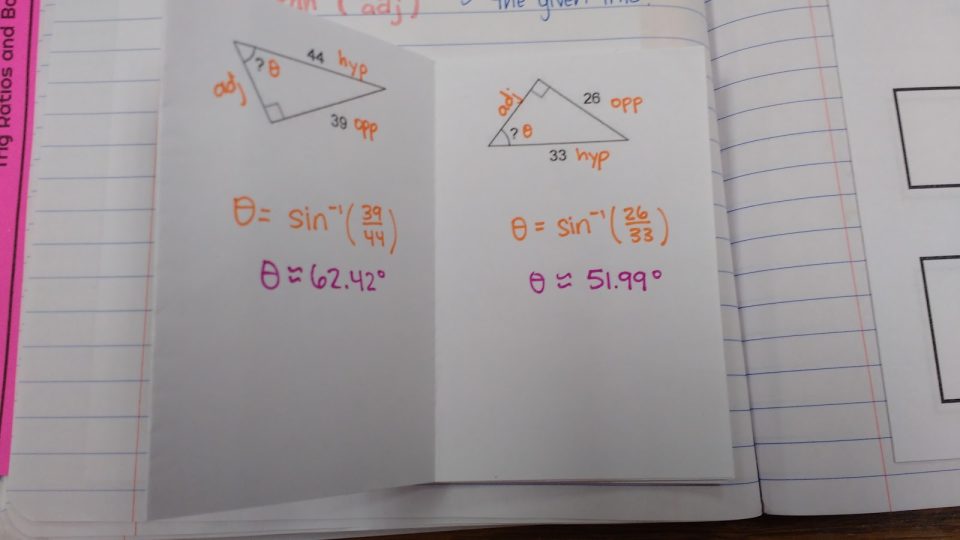 Trig Ratios and
adj)
the given
44 hyp
? θ
adj
39 opp
θ = sin⁻¹(39/44)
θ ≈ 62.42°
adj
26 opp
? θ
33 hyp
θ = sin⁻¹(26/33)
θ ≈ 51.99°